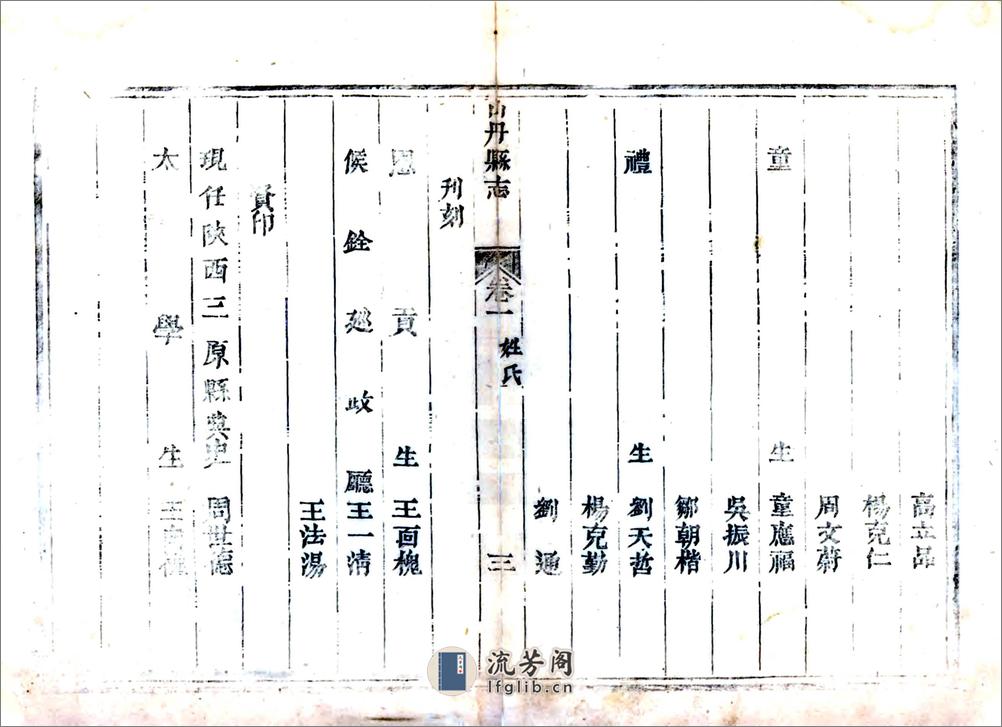 高立品
楊克仁
周文蔚
童生 童應福
吳振川
鄒朝楷
禮生 劉天哲
楊克勤
劉通
山丹縣志 卷一 姓氏 三
刊刻
恩貢生 王面槐
候銓廵政廳王一清
王法湯
賫印
現任陝西三原縣典史 周世德
太學生 王
流芳阁
lfglib.cn